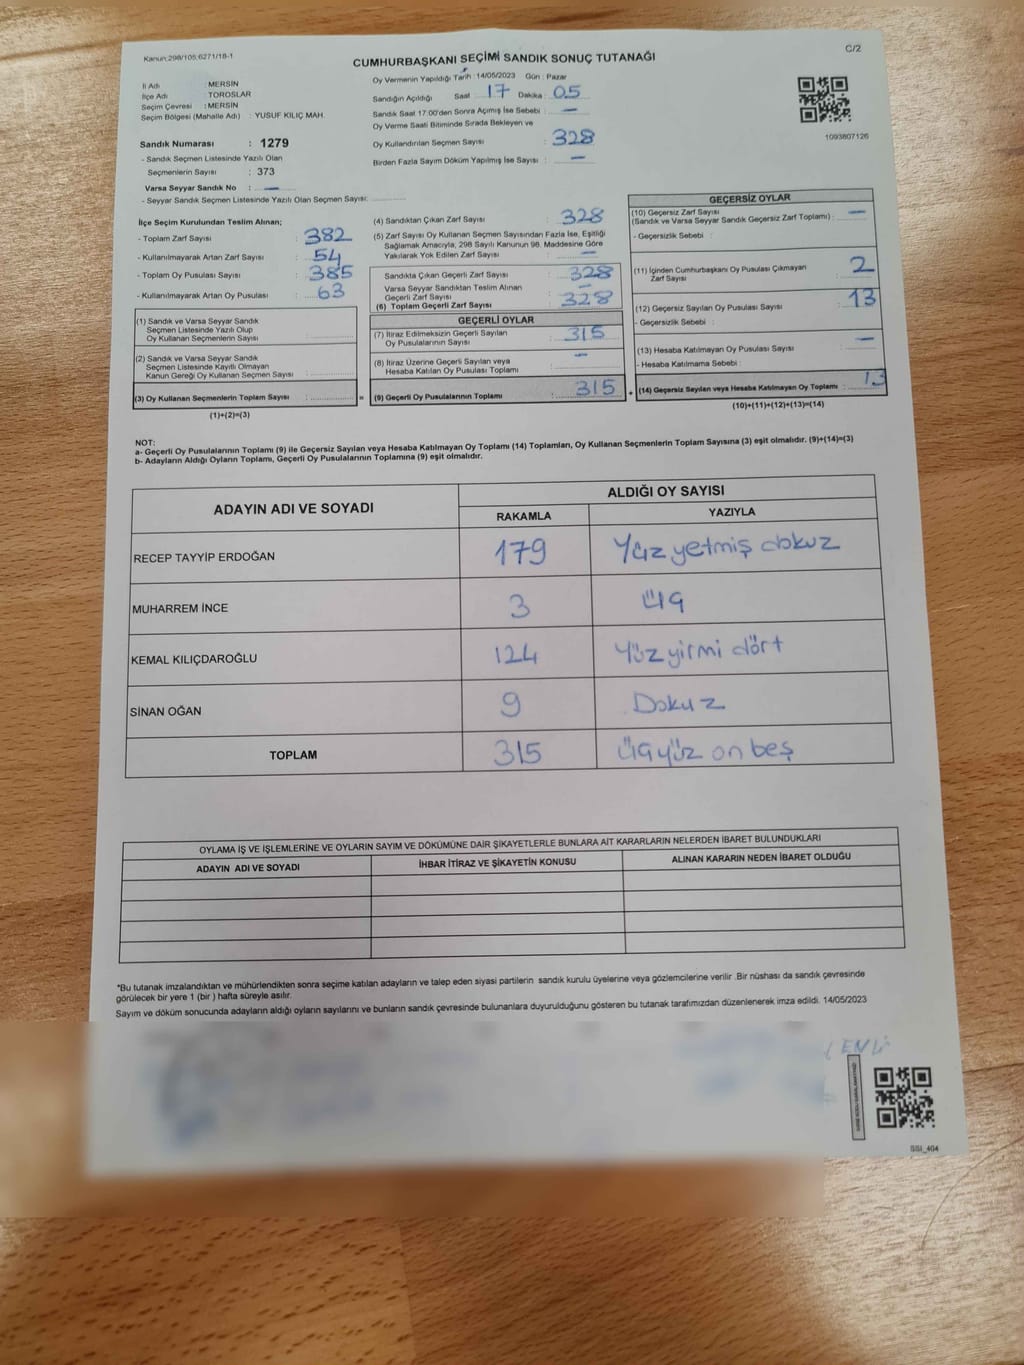 Kanun:298/105;6271/18-1
C/2
CUMHURBAŞKANI SEÇİMİ SANDIK SONUÇ TUTANAĞI
İl Adı : MERSİN
İlçe Adı : TOROSLAR
Seçim Çevresi : MERSİN
Seçim Bölgesi (Mahalle Adı) : YUSUF KILIÇ MAH.
Sandık Numarası : 1279
- Sandık Seçmen Listesinde Yazılı Olan
Seçmenlerin Sayısı : 373
Varsa Seyyar Sandık No : —
- Seyyar Sandık Seçmen Listesinde Yazılı Olan Seçmen Sayısı:
Oy Vermenin Yapıldığı Tarih : 14/05/2023 Gün : Pazar
Sandığın Açıldığı Saat 17 Dakika : 05
Sandık Saat 17:00'den Sonra Açımış İse Sebebi : —
Oy Verme Saati Bitiminde Sırada Bekleyen ve
Oy Kullandırılan Seçmen Sayısı : 328
Birden Fazla Sayım Döküm Yapılmış İse Sayısı : —
1093807126
İlçe Seçim Kurulundan Teslim Alınan;
- Toplam Zarf Sayısı : 382
- Kullanılmayarak Artan Zarf Sayısı : 54
- Toplam Oy Pusulası Sayısı : 385
- Kullanılmayarak Artan Oy Pusulası : 63
(1) Sandık ve Varsa Seyyar Sandık
Seçmen Listesinde Yazılı Olup
Oy Kullanan Seçmenlerin Sayısı :
(2) Sandık ve Varsa Seyyar Sandık
Seçmen Listesinde Kayıtlı Olmayan
Kanun Gereği Oy Kullanan Seçmen Sayısı :
(3) Oy Kullanan Seçmenlerin Toplam Sayısı : =
(1)+(2)=(3)
(4) Sandıktan Çıkan Zarf Sayısı : 328
(5) Zarf Sayısı Oy Kullanan Seçmen Sayısından Fazla İse, Eşitliği
Sağlamak Amacıyla, 298 Sayılı Kanunun 98. Maddesine Göre
Yakılarak Yok Edilen Zarf Sayısı : —
Sandıkta Çıkan Geçerli Zarf Sayısı : 328
Varsa Seyyar Sandıktan Teslim Alınan
Geçerli Zarf Sayısı : —
(6) Toplam Geçerli Zarf Sayısı : 328
GEÇERLİ OYLAR
(7) İtiraz Edilmeksizin Geçerli Sayılan
Oy Pusulalarının Sayısı : 315
(8) İtiraz Üzerine Geçerli Sayılan veya
Hesaba Katılan Oy Pusulası Toplamı : —
(9) Geçerli Oy Pusulalarının Toplamı : 315 +
GEÇERSİZ OYLAR
(10) Geçersiz Zarf Sayısı
(Sandık ve Varsa Seyyar Sandık Geçersiz Zarf Toplamı) : —
- Geçersizlik Sebebi :
(11) İçinden Cumhurbaşkanı Oy Pusulası Çıkmayan
Zarf Sayısı : 2
(12) Geçersiz Sayılan Oy Pusulası Sayısı : 13
- Geçersizlik Sebebi :
(13) Hesaba Katılmayan Oy Pusulası Sayısı : —
- Hesaba Katılmama Sebebi :
(14) Geçersiz Sayılan veya Hesaba Katılmayan Oy Toplamı : 13
(10)+(11)+(12)+(13)=(14)
NOT:
a- Geçerli Oy Pusulalarının Toplamı (9) ile Geçersiz Sayılan veya Hesaba Katılmayan Oy Toplamı (14) Toplamları, Oy Kullanan Seçmenlerin Toplam Sayısına (3) eşit olmalıdır. (9)+(14)=(3)
b- Adayların Aldığı Oyların Toplamı, Geçerli Oy Pusulalarının Toplamına (9) eşit olmalıdır.
ADAYIN ADI VE SOYADI
ALDIĞI OY SAYISI
RAKAMLA YAZIYLA
RECEP TAYYİP ERDOĞAN 179 Yüz yetmiş dokuz
MUHARREM İNCE 3 üç
KEMAL KILIÇDAROĞLU 124 Yüz yirmi dört
SİNAN OĞAN 9 Dokuz
TOPLAM 315 üçyüz on beş
OYLAMA İŞ VE İŞLEMLERİNE VE OYLARIN SAYIM VE DÖKÜMÜNE DAİR ŞİKAYETLERLE BUNLARA AİT KARARLARIN NELERDEN İBARET BULUNDUKLARI
ADAYIN ADI VE SOYADI İHBAR İTİRAZ VE ŞİKAYETİN KONUSU ALINAN KARARIN NEDEN İBARET OLDUĞU
*Bu tutanak imzalandıktan ve mühürlendikten sonra seçime katılan adayların ve talep eden siyasi partilerin sandık kurulu üyelerine veya gözlemcilerine verilir .Bir nüshası da sandık çevresinde
görülecek bir yere 1 (bir ) hafta süreyle asılır.
Sayım ve döküm sonucunda adayların aldığı oyların sayılarını ve bunların sandık çevresinde bulunanlara duyurulduğunu gösteren bu tutanak tarafımızdan düzenlenerek imza edildi. 14/05/2023